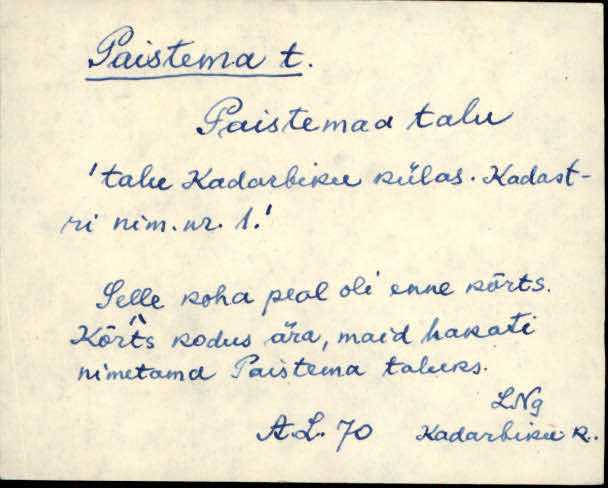 Paistema t.
Paistemaa talu
'talu Kadarbiku külas. Kadast-
ri nim. nr. 1.'
Selle koha peal oli enne kõrts.
Kõrts kodus ära, maid hakati
nimetama Paistema taluks.
LNg
A.L. 70 Kadarbiku k.